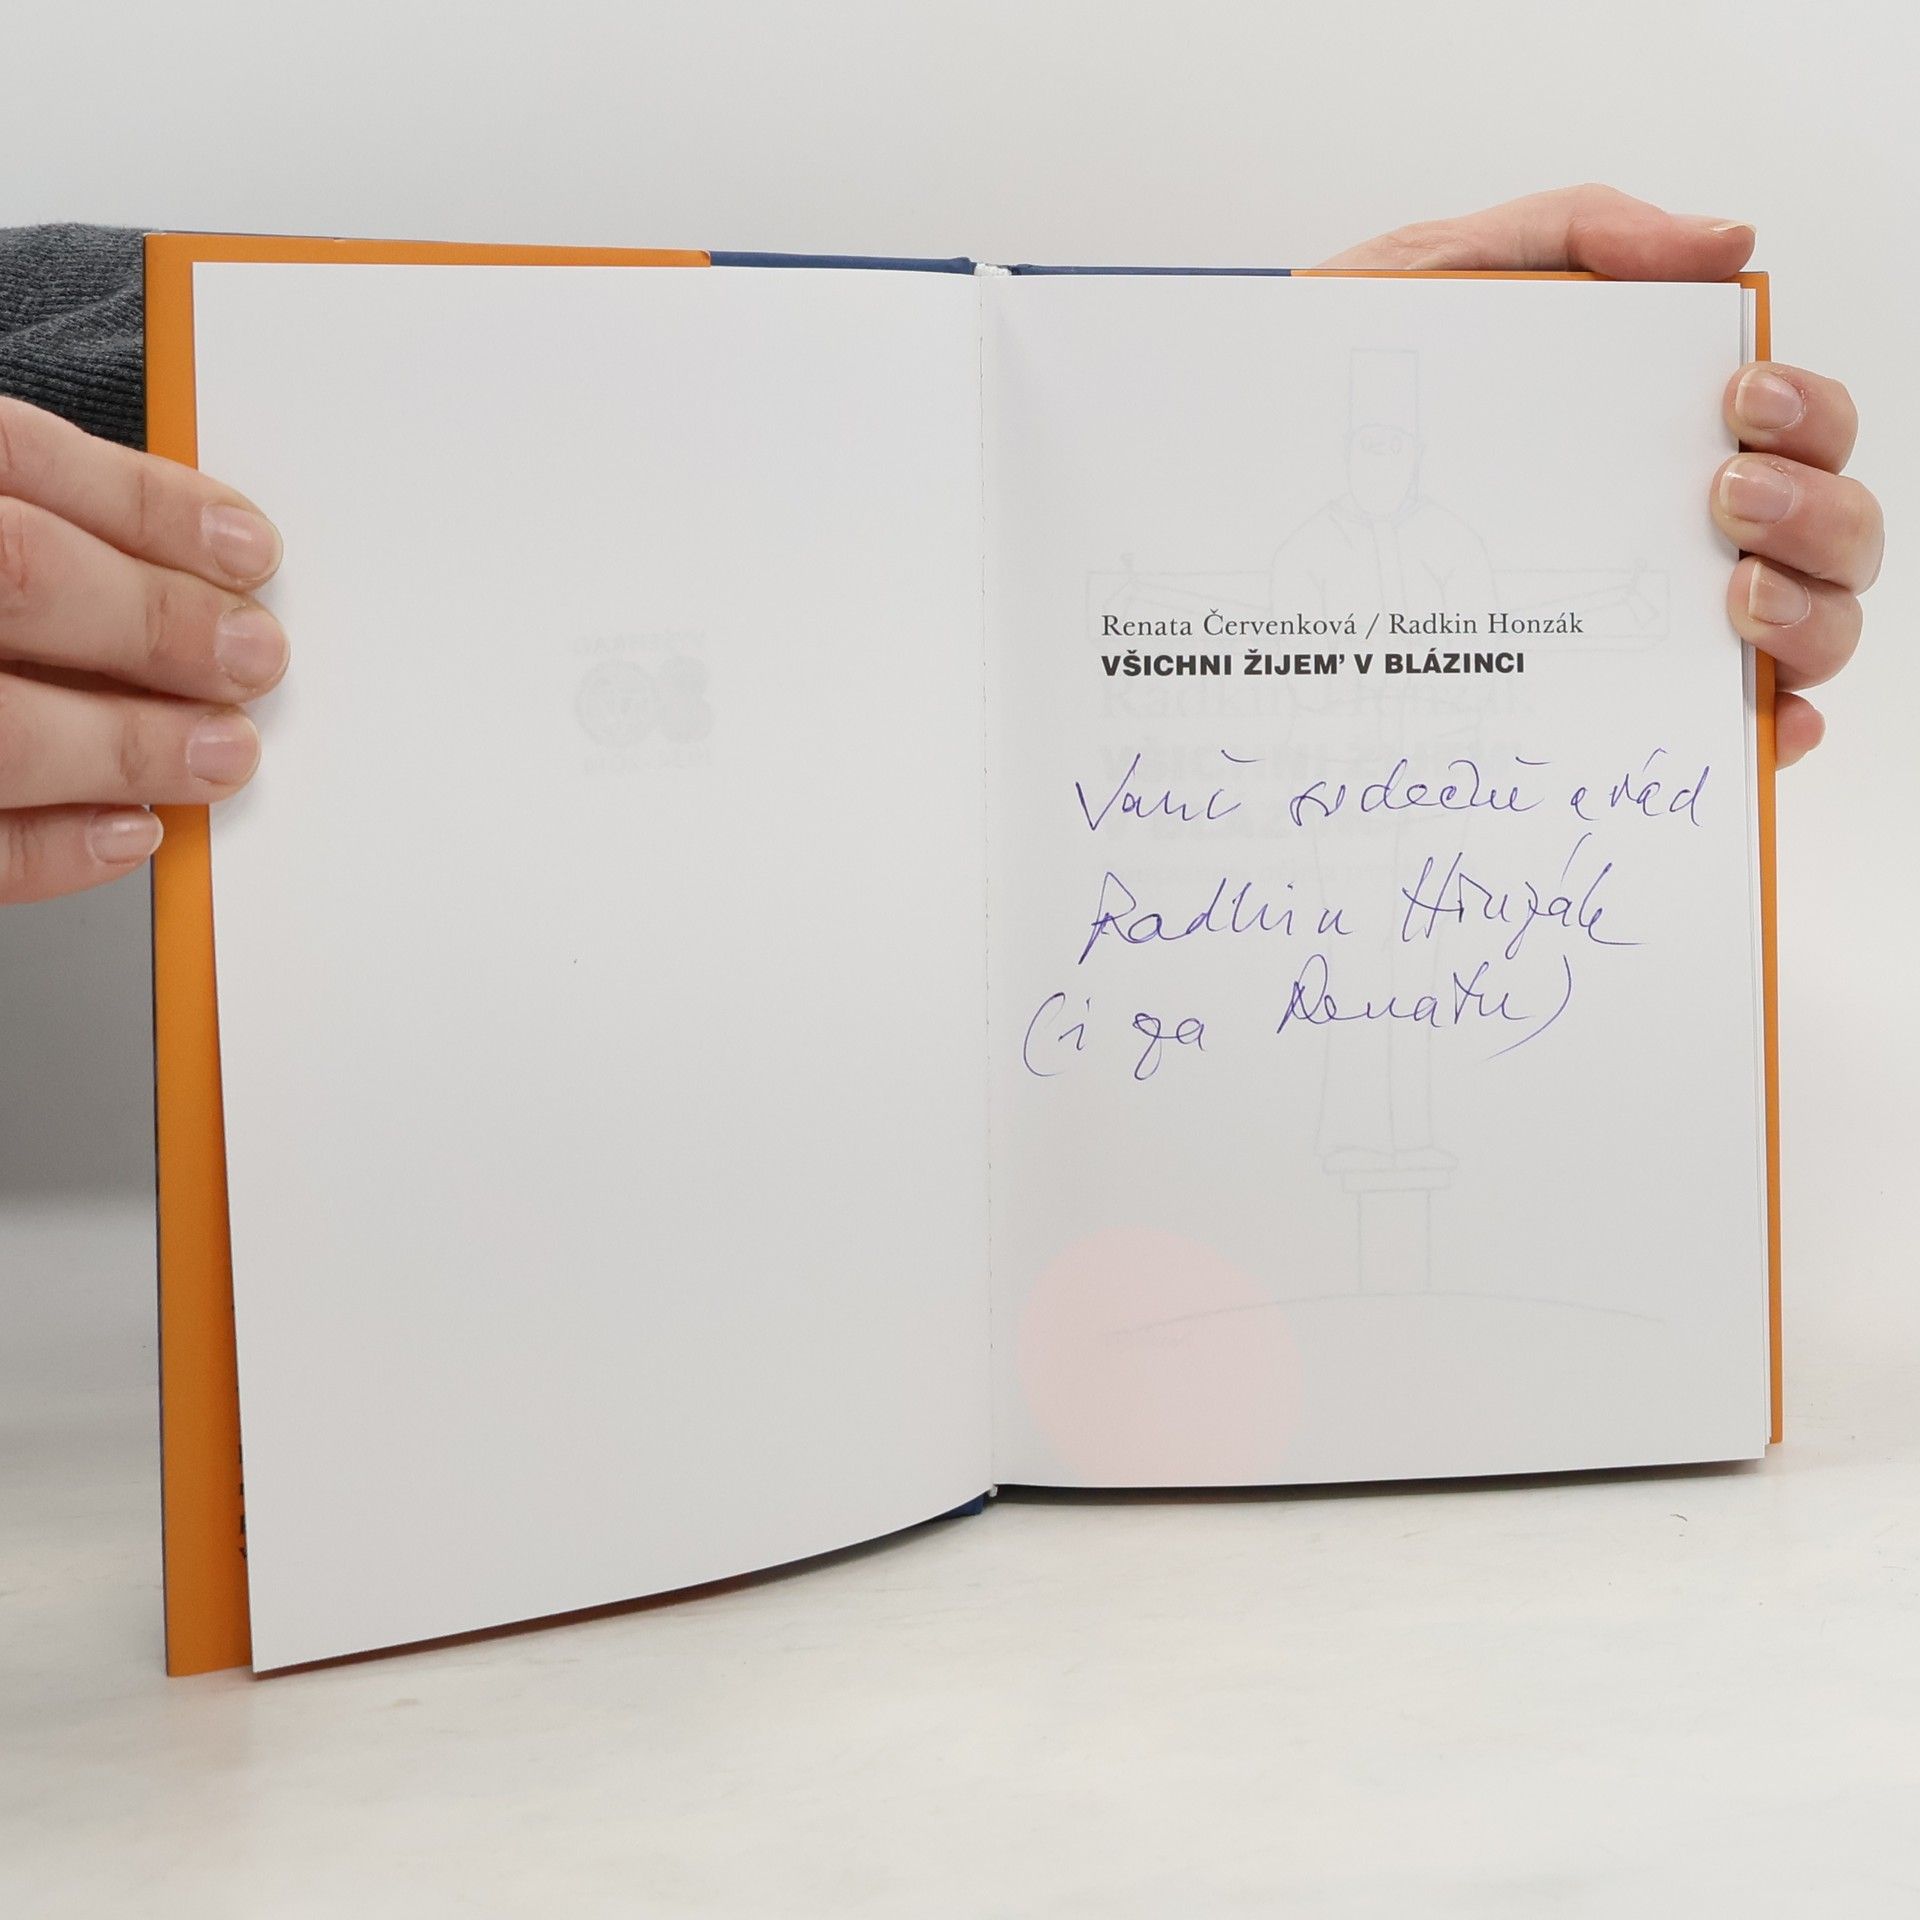 Renata Červenková / Radkin Honzák
VŠICHNI ŽIJEM’ V BLÁZINCI
srdečně a rád
Radkin Honzák
(i za Renatu)